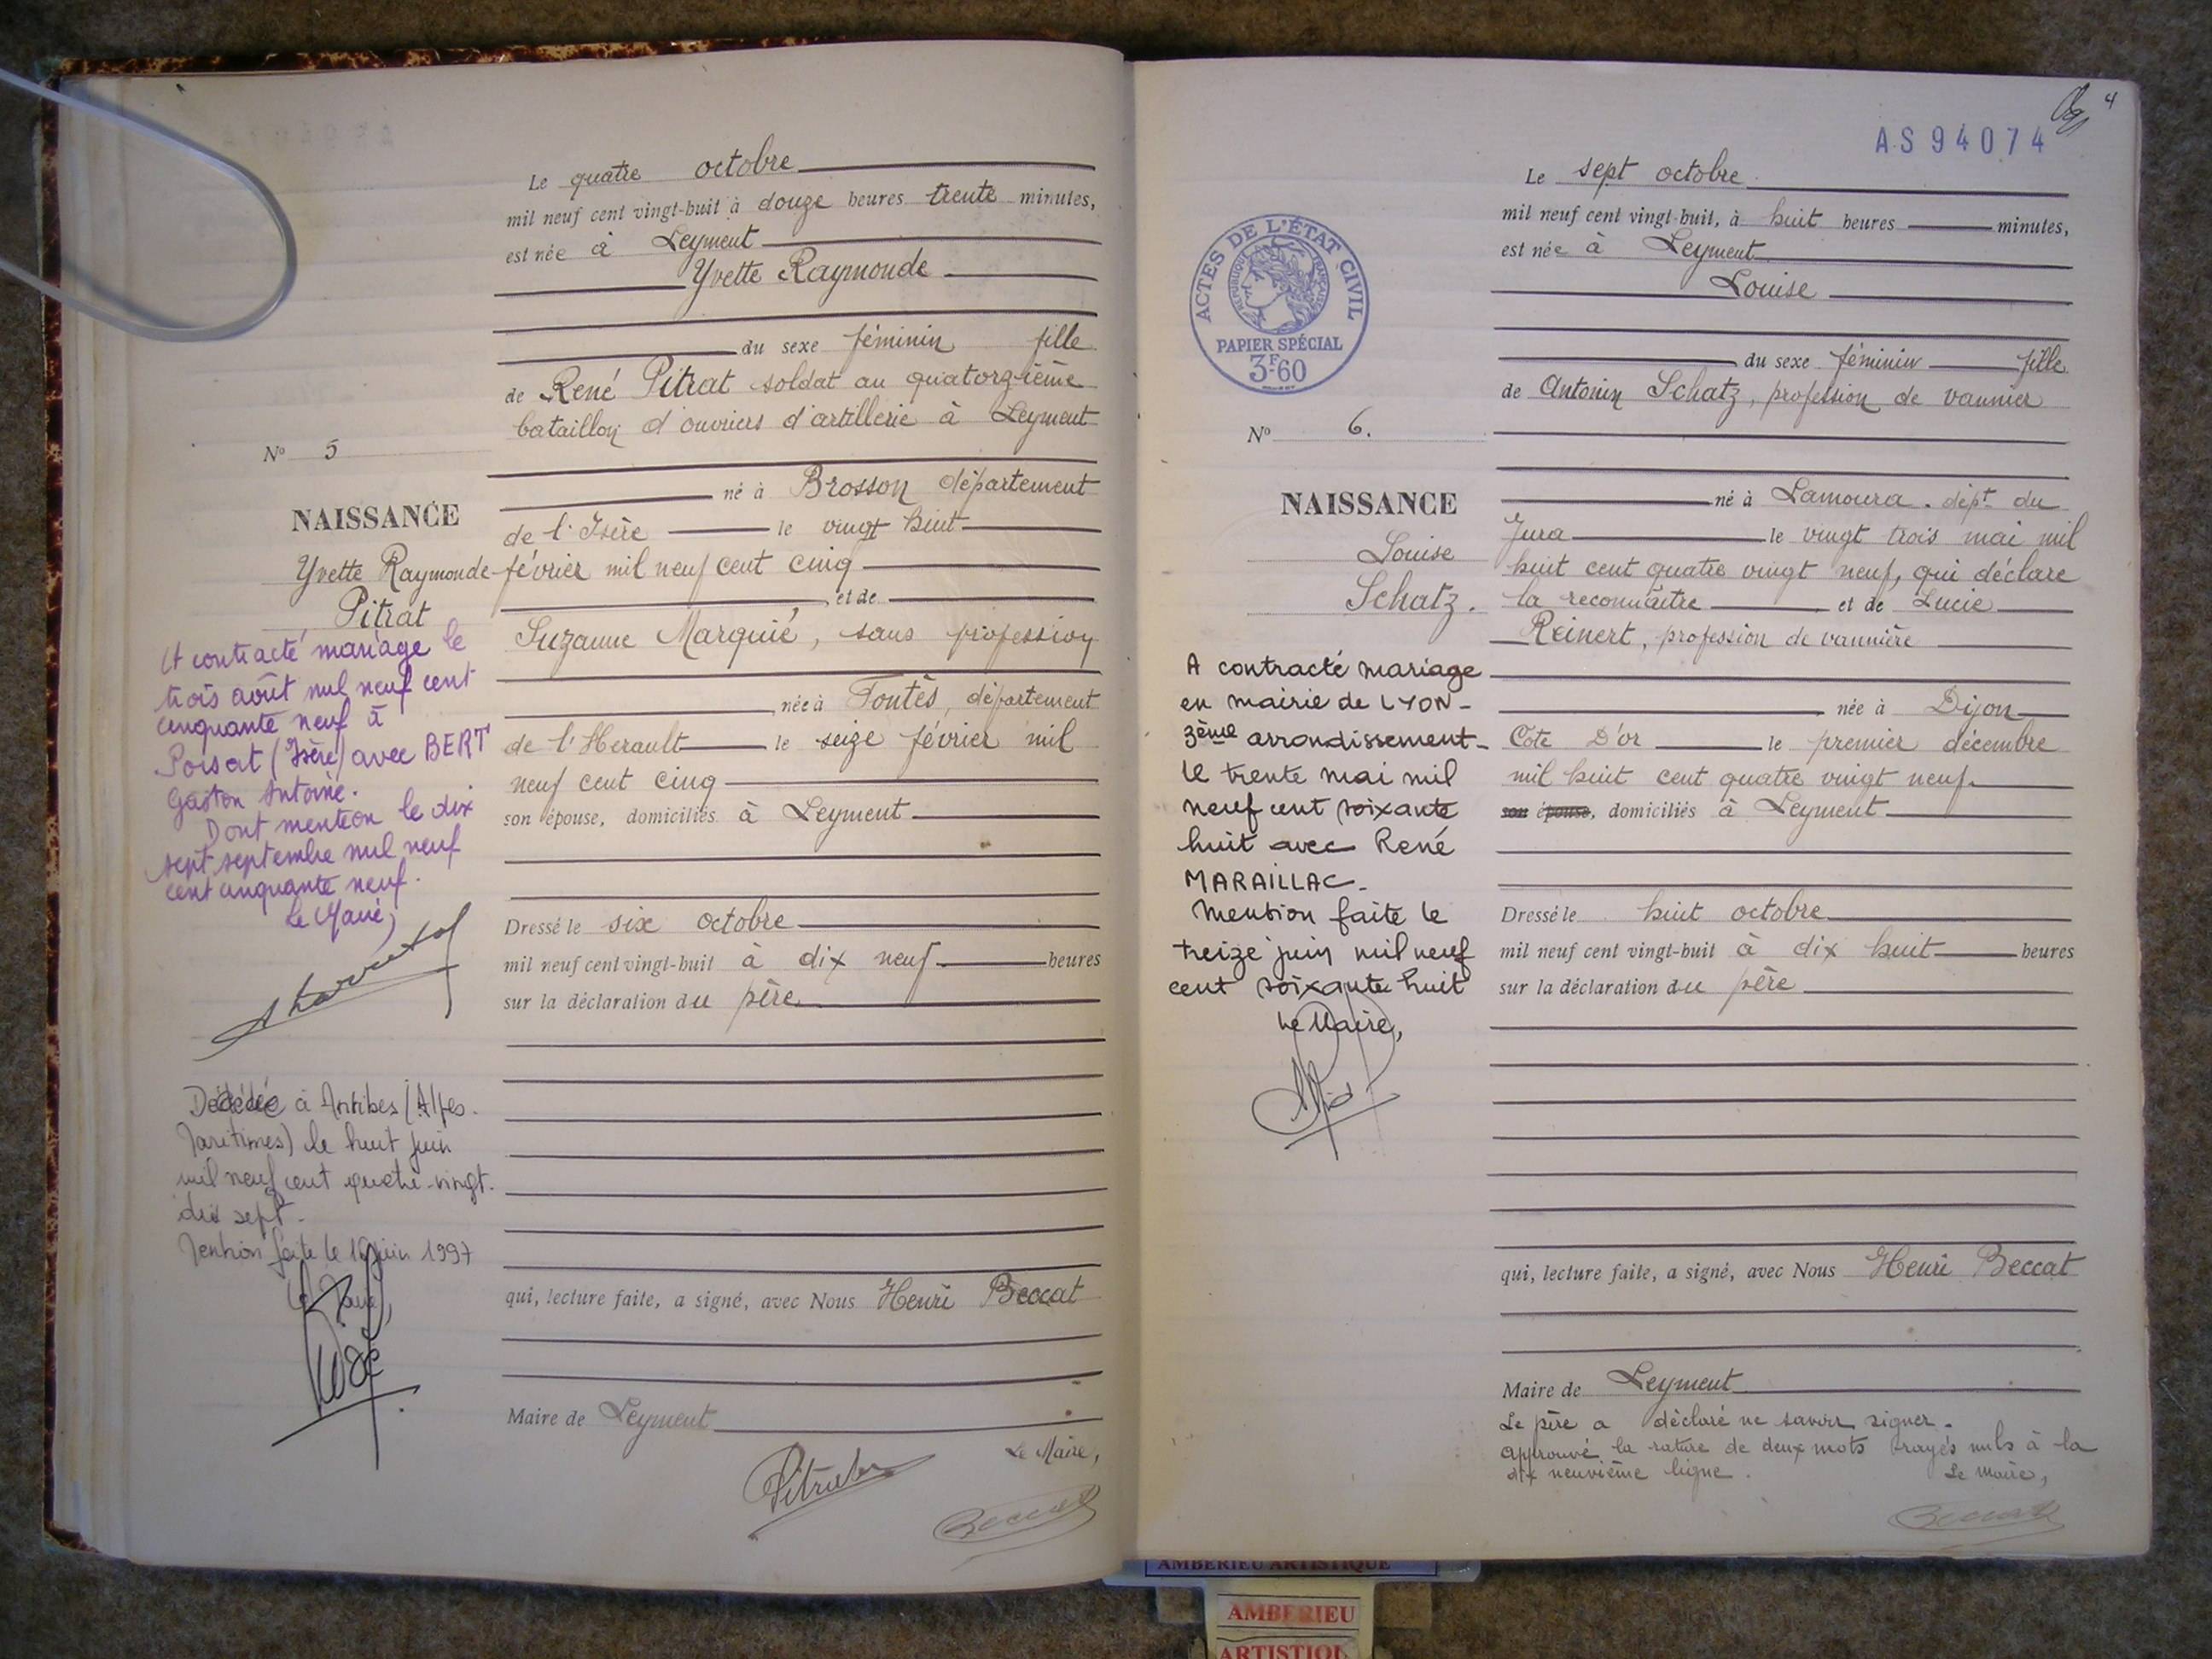 Le quatre octobre
mil neuf cent vingt-huit à douze heures trente minutes,
est née à Leyment
Yvette Raymonde
du sexe féminin fille
de René Pitrat soldat au quatorzième
bataillon d'ouvriers d'artillerie à Leyment
né à Brosson département
de l'Isère le vingt huit
février mil neuf cent cinq
et de
Suzanne Marquié, sans profession
née à Fontès, département
de l'Herault le seize février mil
neuf cent cinq
son épouse, domiciliés à Leyment
Dressé le six octobre
mil neuf cent vingt-huit à dix neuf heures
sur la déclaration du père
qui, lecture faite, a signé, avec Nous Henri Beccat
Maire de Leyment
Le Maire,
Pitrat
Beccat
No 5
NAISSANCE
Yvette Raymonde
Pitrat
A contracté mariage le
trois août mil neuf cent
cinquante neuf à
Poisat (Isère) avec BERT
Gaston Antoine.
Dont mention le dix
sept septembre mil neuf
cent cinquante neuf.
Le Maire,
Décédée à Antibes (Alpes-
Maritimes) le huit juin
mil neuf cent quatre-vingt-
dix sept.
Mention faite le juin 1997
Le Maire,
4
AS94074
Le sept octobre
mil neuf cent vingt-huit, à huit heures minutes,
est née à Leyment
Louise
du sexe féminin fille
de Antonin Schatz, profession de vannier
né à Lamoura. dépt du
Jura le vingt trois mai mil
huit cent quatre vingt neuf, qui déclare
la reconnaître et de Lucie
Reinert, profession de vannière
née à Dijon
Côte D'or le premier décembre
mil huit cent quatre vingt neuf.
son épouse, domiciliés à Leyment
Dressé le huit octobre
mil neuf cent vingt-huit à dix huit heures
sur la déclaration du père
qui, lecture faite, a signé, avec Nous Henri Beccat
Maire de Leyment
Le père a déclaré ne savoir signer.
Approuvé la rature de deux mots rayés nuls à la
dix neuvième ligne.
Le Maire,
Beccat
ACTES DE L'ÉTAT CIVIL
RÉPUBLIQUE FRANÇAISE
PAPIER SPÉCIAL
3F60
No 6.
NAISSANCE
Louise
Schatz.
A contracté mariage
en mairie de LYON-
3ème arrondissement-
le trente mai mil
neuf cent soixante
huit avec René
MARAILLAC.
Mention faite le
treize juin mil neuf
cent soixante huit
Le Maire,
AMBERIEU ARTISTIQUE
AMBERIEU
ARTISTIQUE